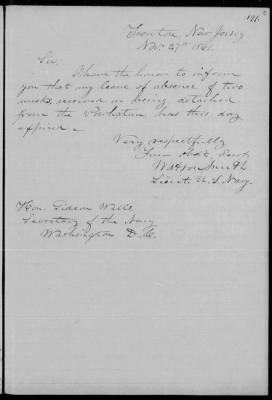 Trenton, New Jersey
Nov. 27th 1861.
Sir
I have the honor to inform
you that my leave of absence of two
weeks, received on being detached
from the has this day
expired.
Very respectfully
Your Obdt. Servt.
Watson Smith
Lieut. U.S. Navy.
Hon. Gideon Welles
Secretary of the Navy
Washington D.C.